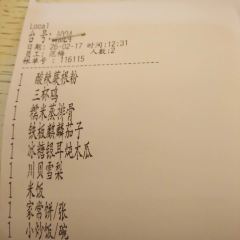 Local
台 号: A004
日期: 26-02-17 时间:12:31
员工: 范梅 人数:2
帐单号 : 116115
1 酸辣蕨根粉
1 三杯鸡
1 糯米蒸排骨
1 铁板麒麟茄子
1 冰糖银耳炖木瓜
1 川贝雪梨
1 米饭
1 家常饼/张
1 小炒饭/碗